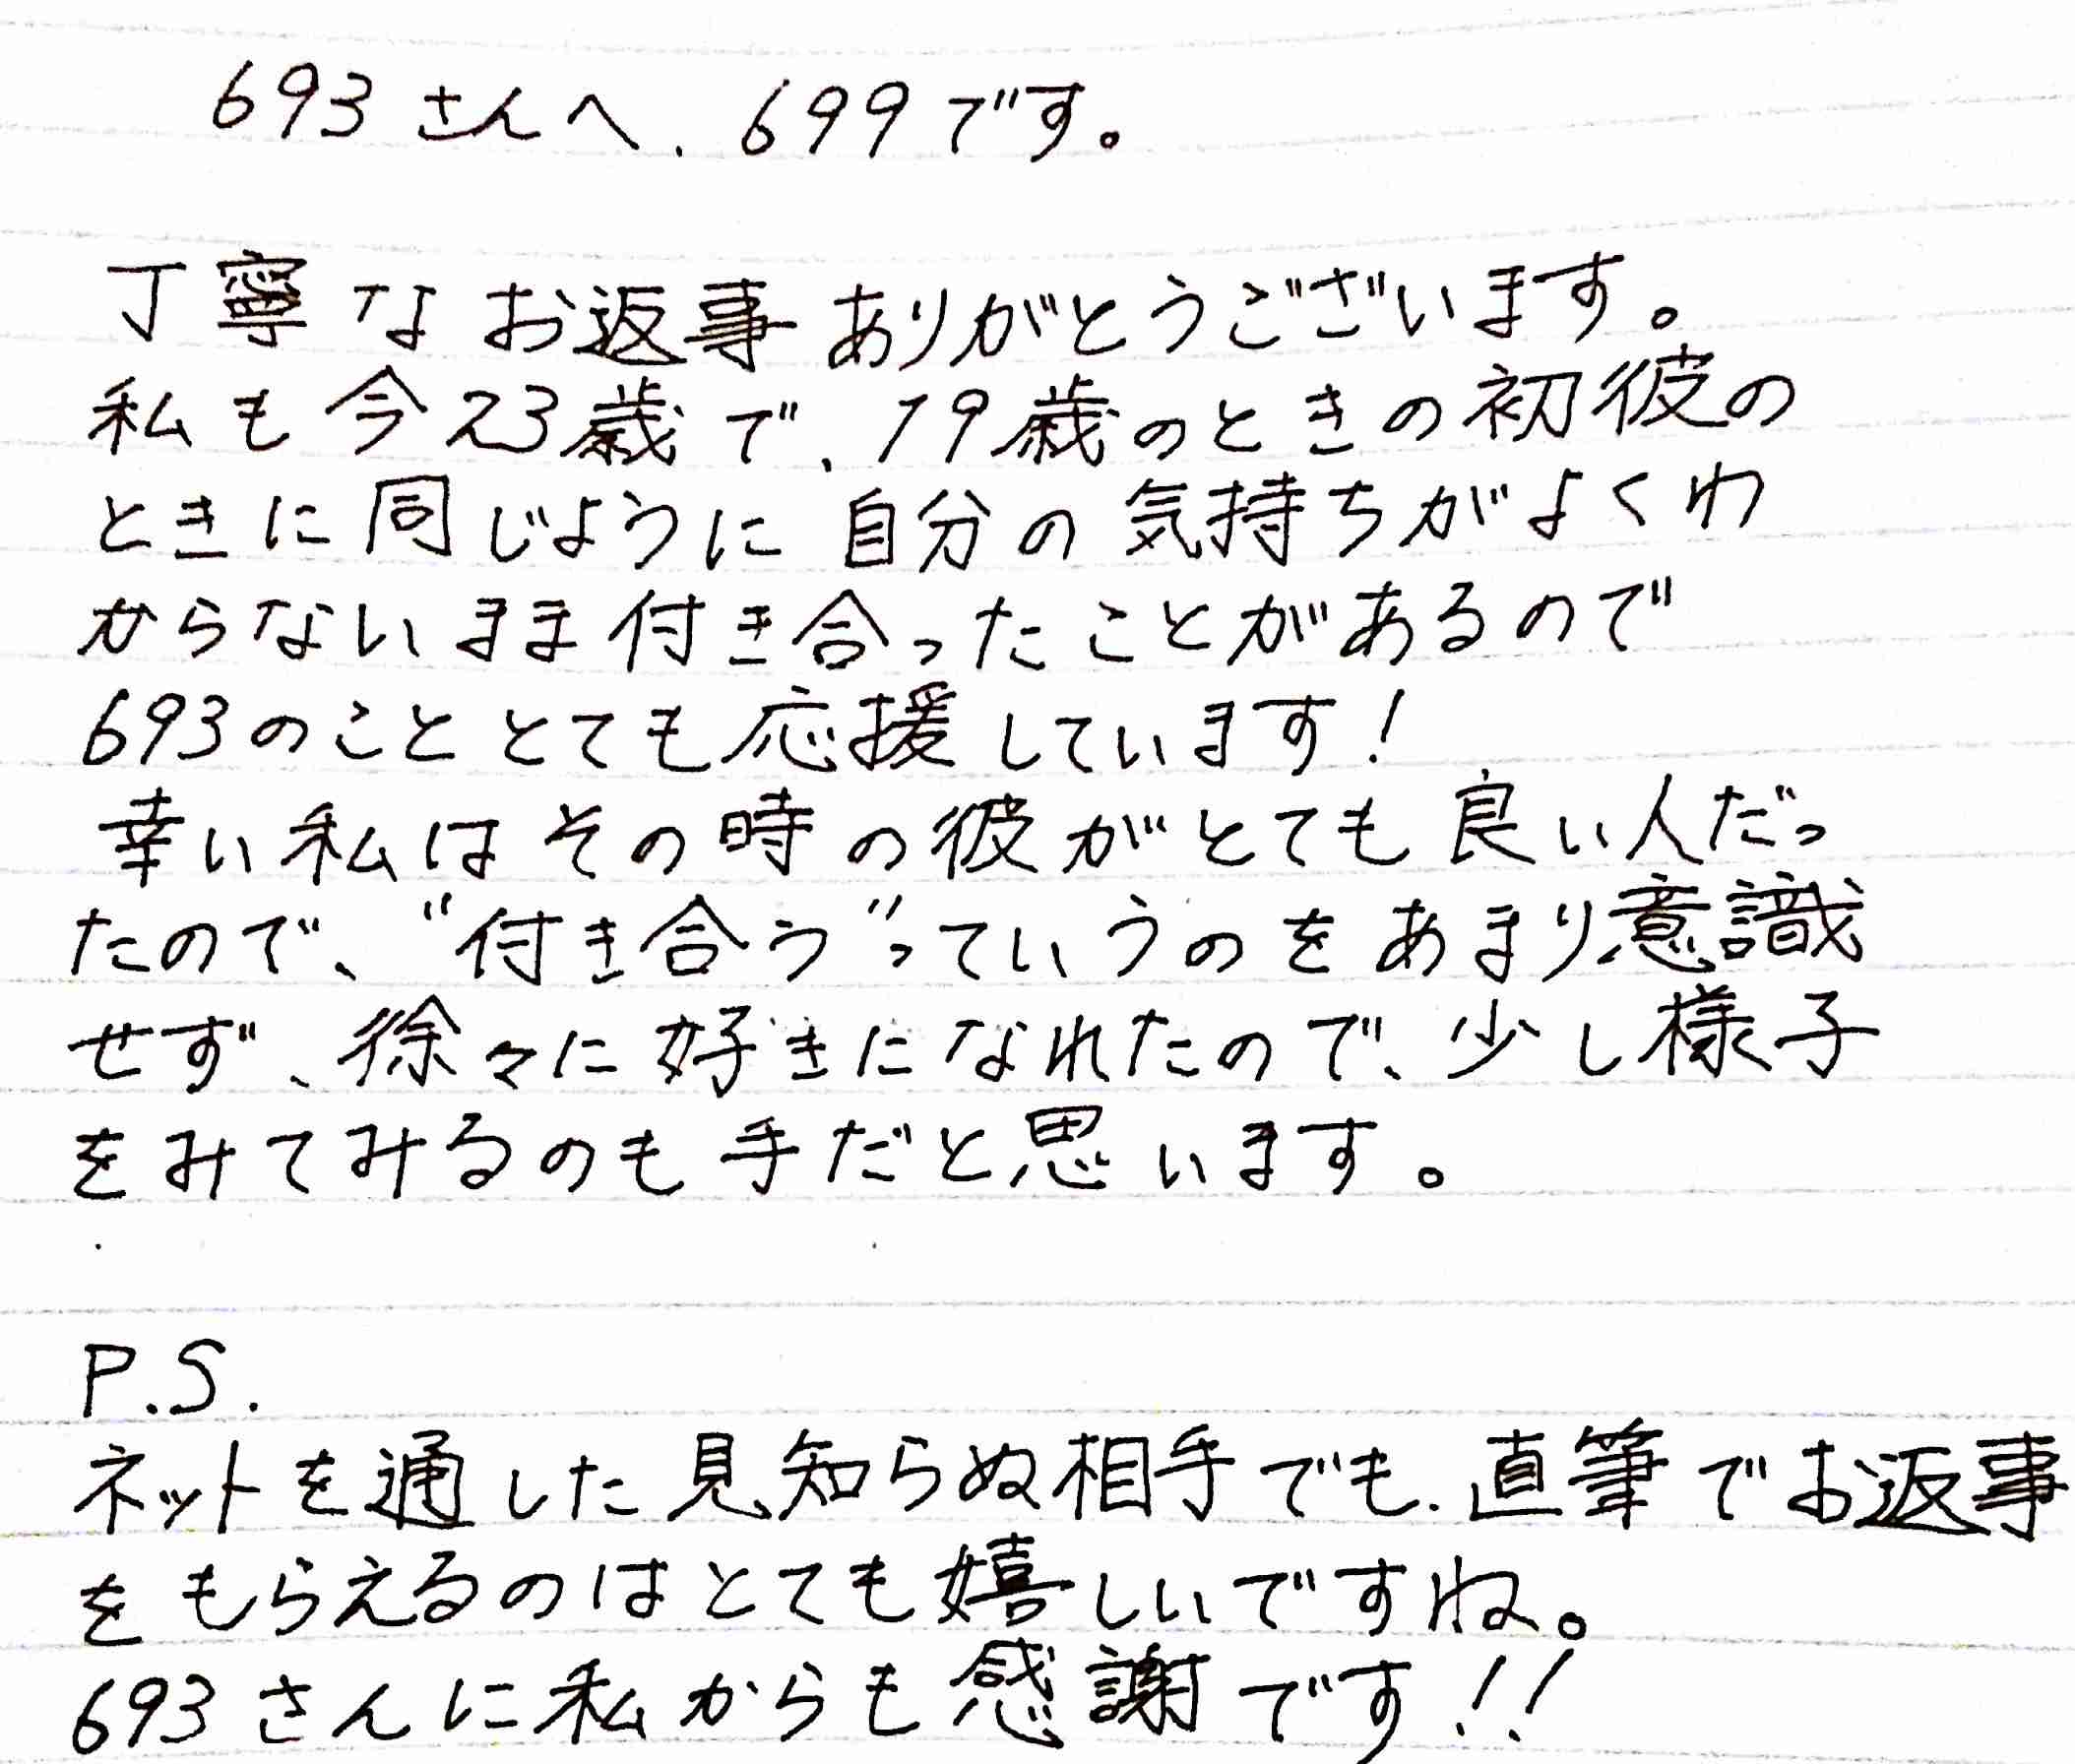 693さんへ、699です。
丁寧なお返事ありがとうございます。
私も今23歳で、19歳のときの初彼の
ときに同じように自分の気持ちがよくわ
からないまま付き合ったことがあるので
693のこととても応援しています!
幸い私はその時の彼がとても良い人だっ
たので、“付き合う”っていうのをあまり意識
せず、徐々に好きになれたので、少し様子
をみてみるのも手だと思います。
P.S.
ネットを通した見知らぬ相手でも、直筆でお返事
をもらえるのはとても嬉しいですね。
693さんに私からも感謝です!!